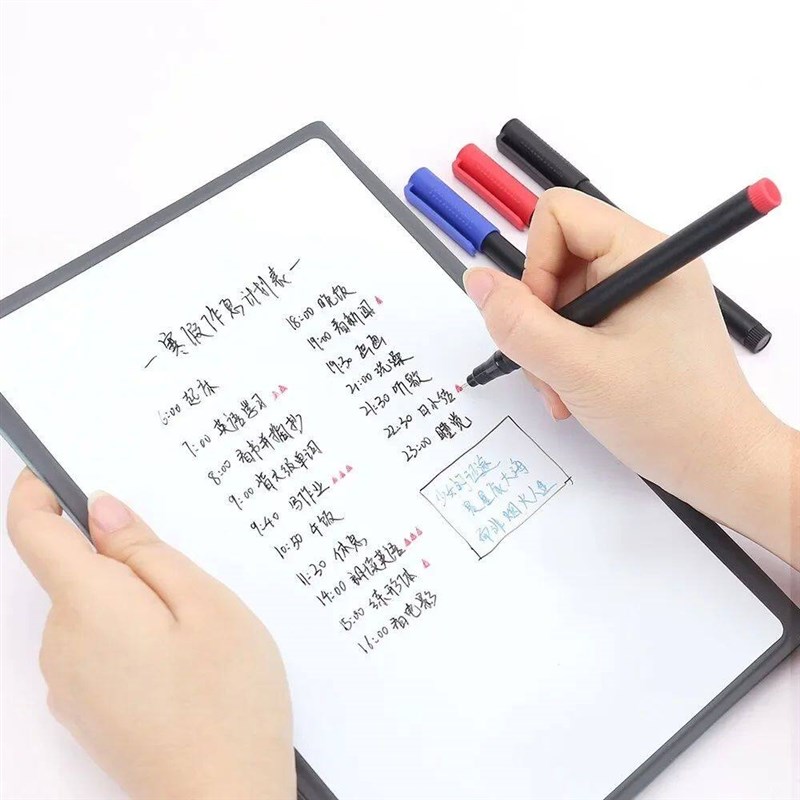 寒假作息计划表
6:00 起床
7:00 英语学习
8:00 看书并摘抄
9:00 背大级单词
9:40 写作业
10:30 午饭
11:30 休息
14:00 朗读英语
15:00 练形体
16:00 看电影
18:00 晚饭
19:00 看新闻
19:30 画画
21:00 洗澡
21:30 听歌
22:30 日小结
23:00 睡觉
星辰大海